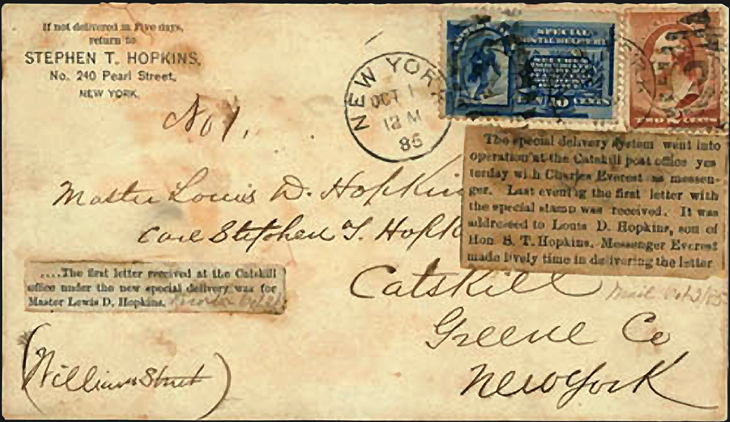 If not delivered in Five days,
return to
STEPHEN T. HOPKINS,
No. 240 Pearl Street,
NEW YORK.
NEW YORK
OCT 1
12 M
85
SPECIAL
POSTAL DELIVERY
SECURES
TEN CENTS
TWO CENTS
No 1.
Master Louis D. Hopkin
Care Stephen T. Hopk
Catskill
Greene Co
New York
(William Street)
The special delivery system went into
operation at the Catskill post office yes
terday with Charles Everest as messen-
ger. Last evening the first letter with
the special stamp was received. It was
addressed to Louis D. Hopkins, son of
Hon S. T. Hopkins. Messenger Everest
made lively time in delivering the letter
Mail Oct 2/85
....The first letter received at the Catskill
office under the new special delivery was for
Master Lewis D. Hopkins.